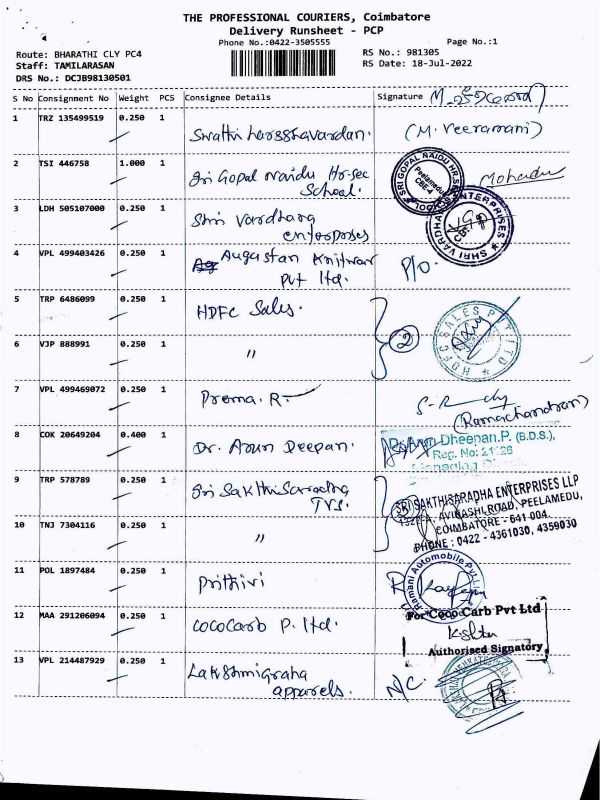 THE PROFESSIONAL COURIERS, Coimbatore
Delivery Runsheet - PCP
Phone No.:0422-3505555
Page No.:1
Route: BHARATHI CLY PC4
RS No.: 981305
Staff: TAMILARASAN
RS Date: 18-Jul-2022
DRS No.: DCJB98130501
S No Consignment No Weight PCS Consignee Details Signature
1 TRZ 135499519 0.250 1 Swathi harsshavardan. (M. Veeramani)
2 TSI 446758 1.000 1 Sri Gopal Naidu Hr.sec
School.
SRI GOPAL NAIDU HR.SEC
Peelamedu
CBE-4
3 LDH 505107000 0.250 1 Shri Vardhana
enterprises
SHRI VARDHANA ENTERPRISES
4 VPL 499403426 0.250 1 Augastan Knitwar P/O.
Pvt ltd.
5 TRP 6486099 0.250 1 HDFC Sales.
2
HDFC SALES PVT LTD
6 VJP 888991 0.250 1 "
7 VPL 499469072 0.250 1 Prema. R
(Ramachandran)
8 COK 20649204 0.400 1 Dr. Arun Deepan.
Dr. Arun Dheepan.P. (B.D.S.),
Reg. No: 21126
9 TRP 578789 0.250 1 Sri Sakthisaradha
TVS.
SRI SAKTHISARADHA ENTERPRISES LLP
AVINASHI ROAD, PEELAMEDU,
COIMBATORE - 641 004.
PHONE : 0422 - 4361030, 4359030
10 TNJ 7304116 0.250 1 "
11 POL 1897484 0.250 1 Prithivi
Ramani Automobile Pvt
12 MAA 291206094 0.250 1 CocoCarb P. ltd.
For Coco Carb Pvt Ltd
Authorised Signatory
13 VPL 214487929 0.250 1 Lakshmigraha N/C.
apparels.